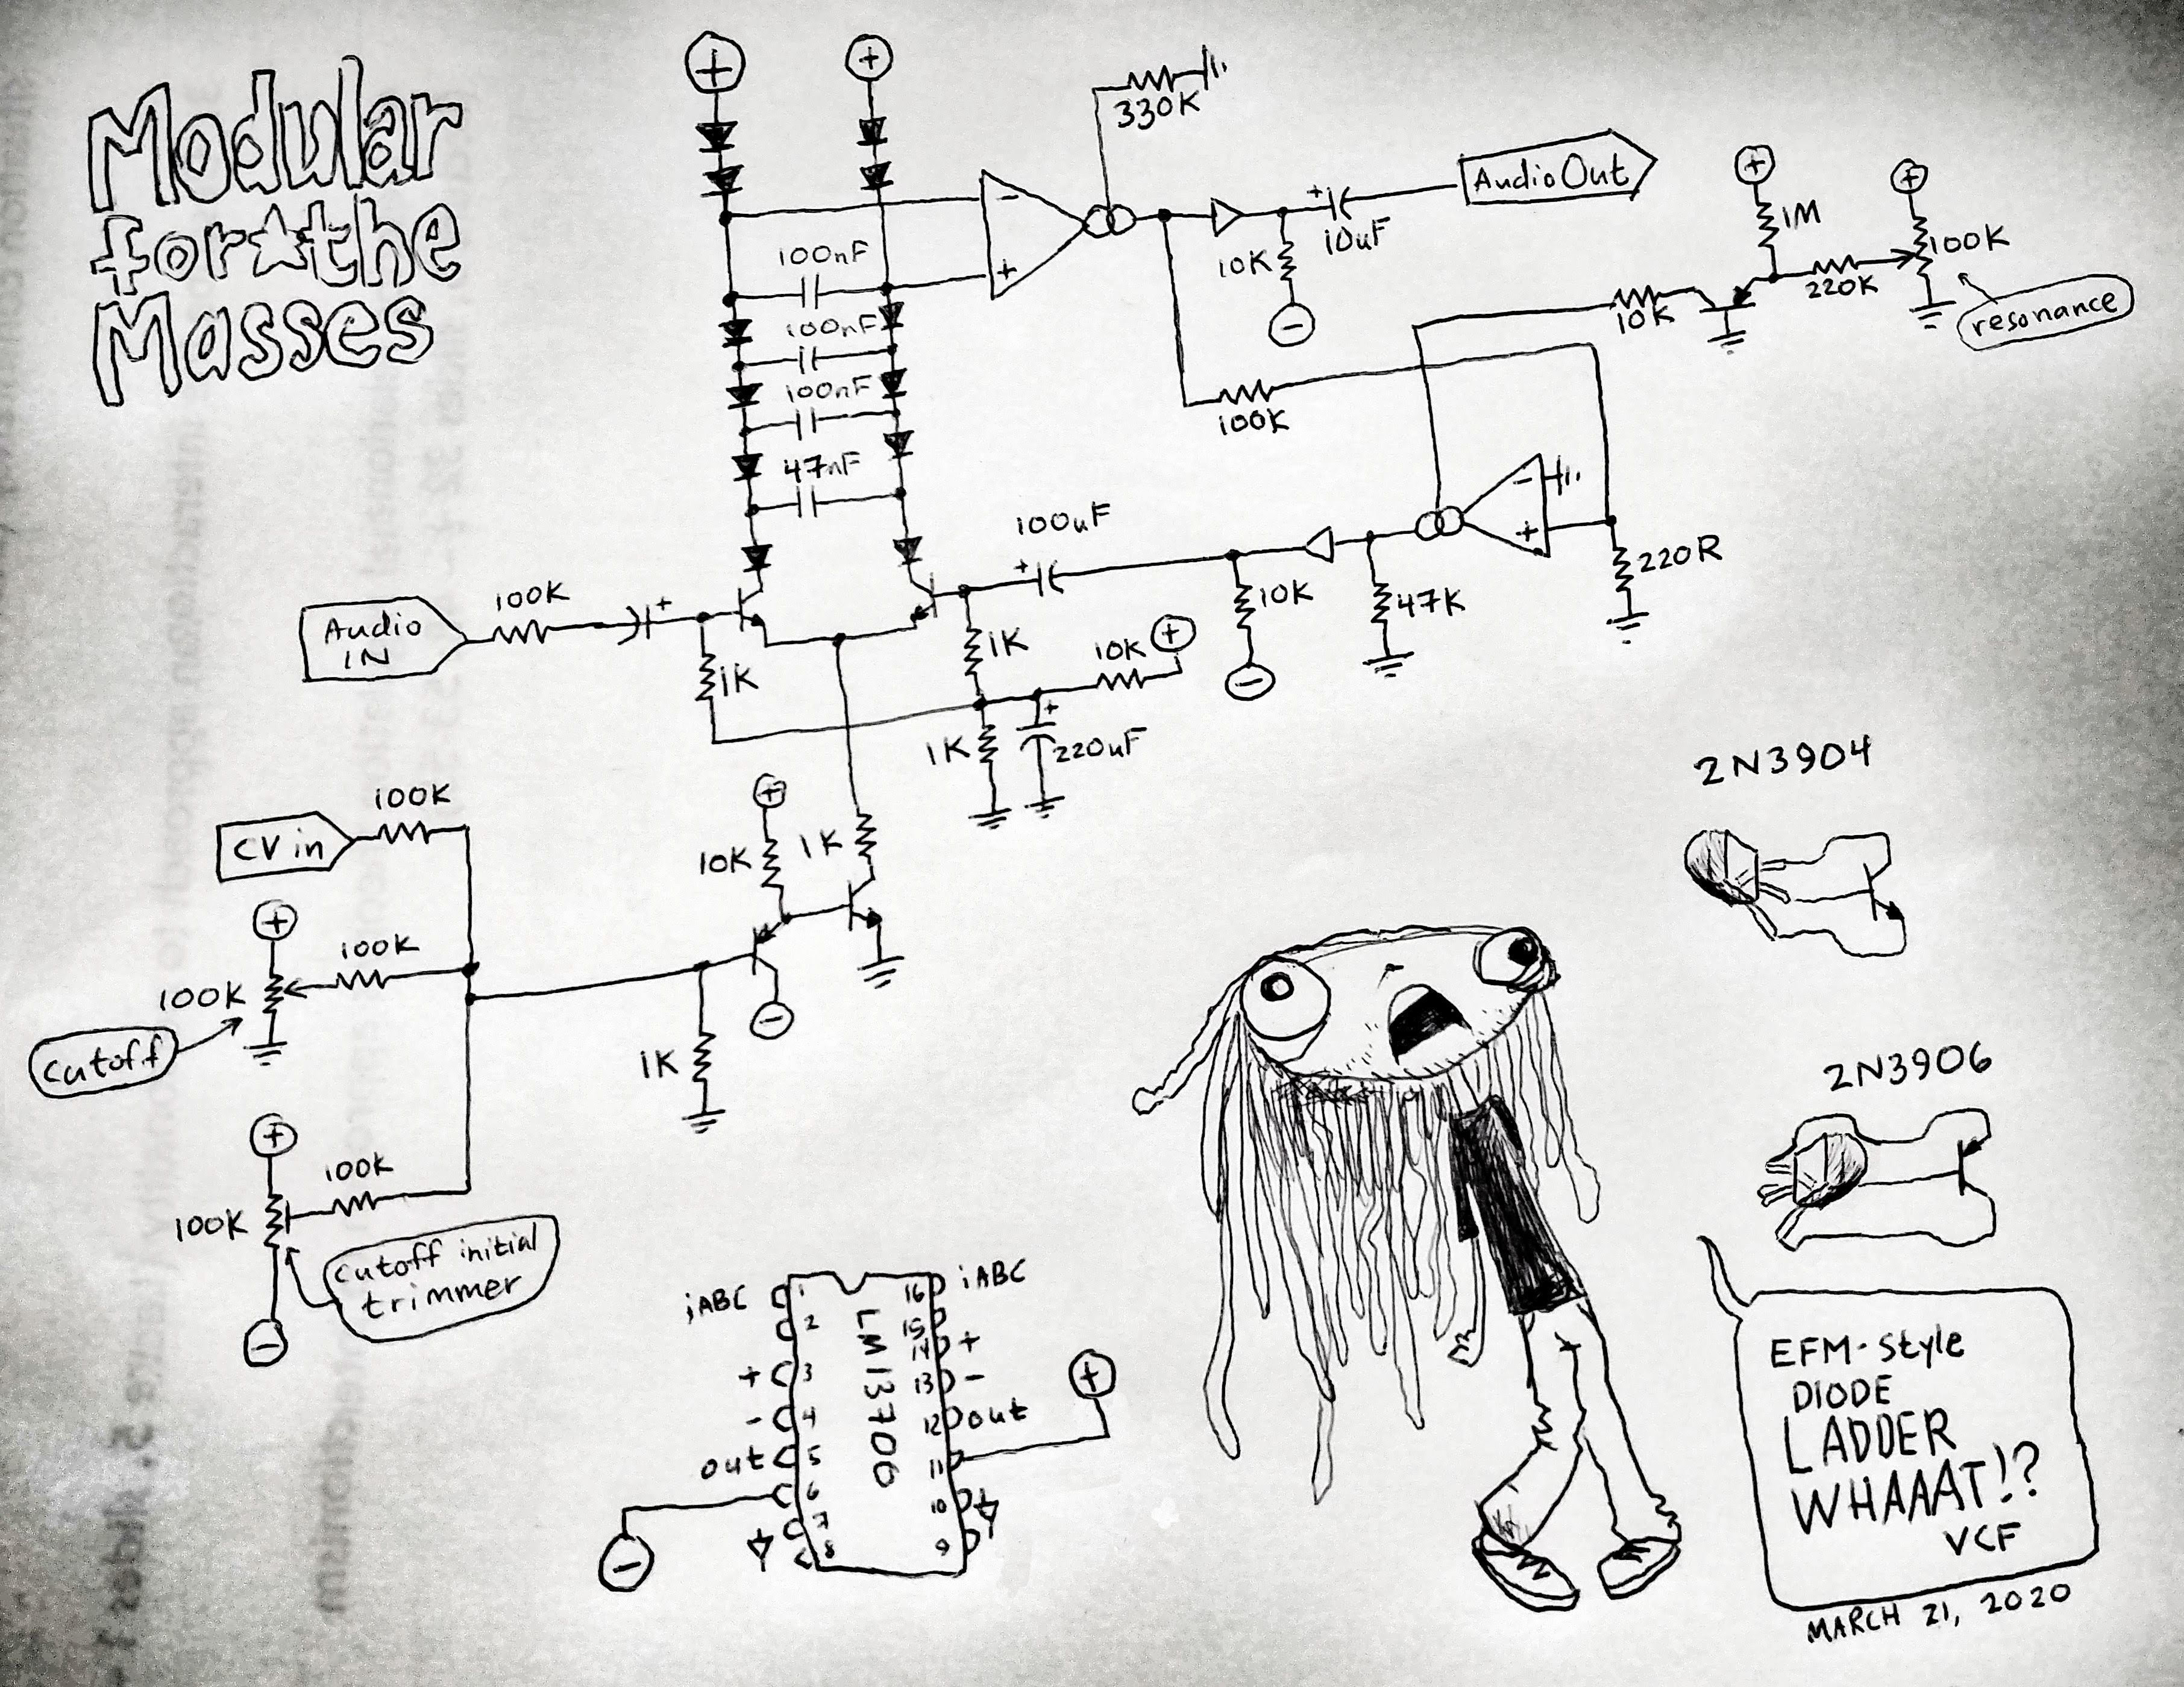 Modular
for the
Masses
+
+
330K
Audio Out
+
10uF
10K
-
-
+
100nF
100nF
100nF
47nF
+
1M
+
100K
220K
10K
resonance
100K
-
+
220R
47K
10K
-
100uF
+
Audio
IN
100K
+
1K
1K
10K
+
+
1K
220uF
CV in
100K
+
10K
1K
+
100K
100K
Cutoff
-
1K
+
100K
100K
Cutoff initial
trimmer
-
2N3904
2N3906
iABC 1 16 iABC
2 15
+ 3 14 +
- 4 13 -
out 5 12 out
6 11 +
7 10
8 9
-
LM13700
EFM-Style
DIODE
LADDER
WHAAAT!?
VCF
MARCH 21, 2020